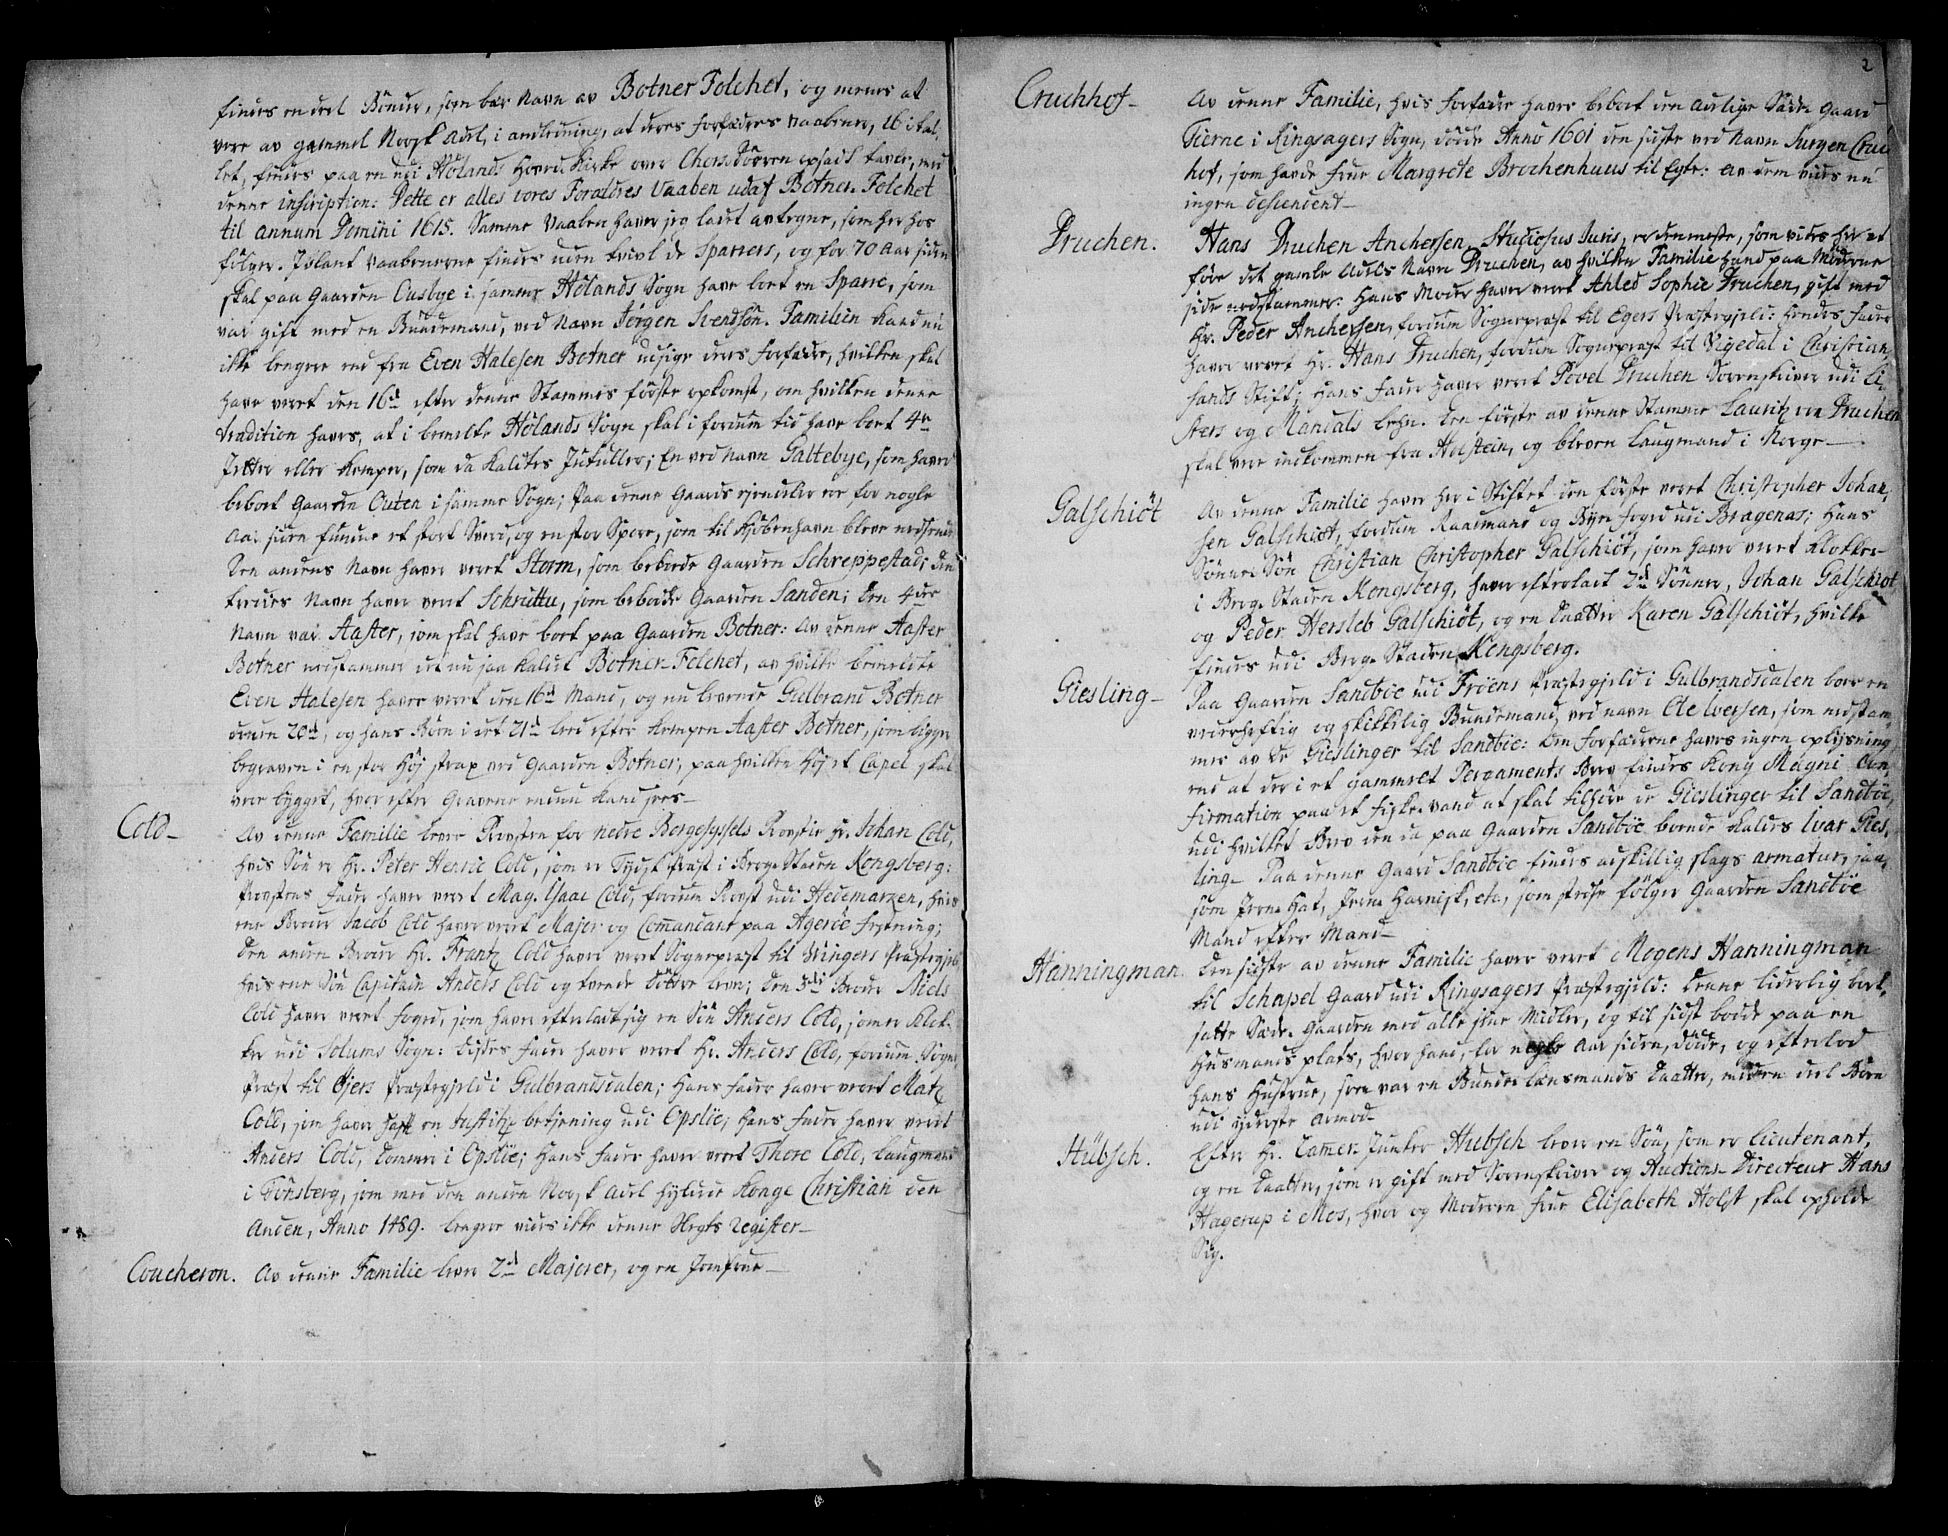 findes en deel Bönder, som bær Navn av Botner Folchet, og menes at
være av gammel Norsk Adel, i anledning, at deres Forfædres Vaabener, 16 i tal-
let, findes paa en udi Hölands Hoved Kirke over Chors Dören opsadt Tavle, med
denne inscription: Dette er alles vores Foraldres Vaaben udaf Botner Folchet
til annum Domini 1615. Samme Vaaben haver jeg ladet avtegne, som her hos
fölger. Iblant Vaabenerne findes uden tvivl de Sparrers, og for 70 Aar siden
skal paa Gaarden Ousbye i samme Hölands Sogn have boet en Sparre, som
var gift med en Bundemand, ved Navn Jörgen Svendsön. Familien kand nu
ikke lengere end fra Even Halesen Botner udsige deres Forfædre, hvilken skal
have været den 16d efter denne Stammes förste opkomst, om hvilken denne
tradition haves, at i bemelte Hölands Sogn skal i fordum tid have boet 4re
Jetter eller Kemper, som da kaldtes Jutuller; En ved Navn Galtebye, som haver
beboet Gaarden Outen i samme Sogn; Paa denne Gaards ejendeler er for nogle
Aar siden fundne et stort Sverd, og en stor Spore, som til Kjöbenhavn bleve nedsendt
Den andens Navn haver veret Storm, som beboede Gaarden Schreppestad; den
tredies Navn haver veret Schruttu, som beboede Gaarden Sanden; Den 4des
Navn var Aaster, som skal have boet paa Gaarden Botner: Av denne Aaster
Botner nedstammer det nu saa kaldet Botner-Folchet, av hvilke bemeldte
Even Halesen haver veret den 16d Mand, og nu levende Gulbrand Botner
denen 20d, og hans Börn i det 21d leed efter Kempen Aaster Botner, som ligger
begraven i en stor Höj strax ved Gaarden Botner, paa hvilken Höj et Capel skal
vere bygget, hvor efter Gravene endnu kand sees-
Cold- Av denne Familie lever Provsten for nedre Borgesyssels Provstie Hr. Johan Cold,
hvis Sön er Hr. Peter Henric Cold, som er Tydsk Præst i Berg-Staden Kongsberg:
Provstens Fader haver veret Mag. Isaac Cold, fordum Provst udi Hedemarken, hvis
ene Broder Jacob Cold haver veret Major og Comandant paa Ageröe Festning;
Den anden Broder Hr. Frantz Cold haver veret Sogneprest til Vingers Præstegjeld
hvis ene Sön Capitain Anders Cold og tvende Döttre lever; Den 3die Broder Niels
Cold haver veret Foged, som haver efterladt sig en Sön Anders Cold, som er Klok-
ker udi Solums Sogn: Disses Fader haver veret Hr. Anders Cold, fordum Sogne
Præst til Öjers Præstegjeld i Gulbrandsdalen; Hans Fader haver veret Matz
Cold, som haver haft en Justitz betjening udi Opslöe; Hans Fader haver veret
Anders Cold, Dommer i Opslöe; Hans Fader haver veret Thore Cold, Laugmand
i Tönsberg, som med den anden Norsk Adel hyldede Konge Christian den
Anden, Anno 1489. Lengere vides ikke denne Slegts Register-
Coucheron. Av denne Familie lever 2de Majorer, og en Jomfrue-
2
Cruchhof- Av denne Familie, hvis Forfædre haver beboet den Adelige Sæde Gaard
Tierne i Ringsagers Sogn, döde Anno 1601 den sidste ved Navn Jurgen Cruc
hof, som havde Frue Margrete Brochenhuus til Egte: av dem vides nu
ingen descendent-
Druchen. Hans Druchen Anchersen, Studiosus Juris, er den neste, som vides her at
före det gamle Adels Navn Druchen, av hvilken Familie hand paa Möderne
side nedstammer: Hans Moder haver veret Ahled Sophie Druchen, gift med
Hr. Peder Anchersen, fordum Sognepræst til Egers Præstegjeld: Hendes Fader
haver veret Hr. Hans Druchen, fordum Sognepræst til Vigedal i Christian-
sands Stift; Hans Fader haver veret Povel Druchen Sorenskriver udi Li-
sters og Mandals Lehn. Den förste av denne Stamme Lauritz von Druchen
skal vere indkommen fra Holstein, og bleven Laugmand i Norge-
Galschiöt Av denne Familie haver her i Stiftet den förste veret Christopher Johan-
sen Galschiöt, fordum Raadmand og Bye Foged udi Bragenæs; Hans
Sönne Sön Christian Christopher Galschiöt, som haver veret Klokker
i Berg-Staden Kongsberg, haver efterladt 2de Sönner, Johan Galschiöt
og Peder Hersleb Galschiöt, og en Daatter Karen Galschiöt, hvilke
findes udi Berg-Staden Kongsberg.
Giesling- Paa Gaarden Sandböe udi Fröens Præstegjeld i Gulbrandsdalen boer en
vederheftig og skikkelig Bundemand, ved navn Ole Iversen, som nedstam-
mer av de Gieslinger til Sandböe: Om Forfædrene haves ingen oplysning,
end at der i et gammelt Pergaments Brev findes Kong Magni Con-
firmation paa et Fiske-vand at skal tilhöre de Gieslinger til Sandböe,
udi hvilket Brev den da paa Gaarden Sandböe boende kaldes Ivar Gies-
ling- Paa denne Gaard Sandböe findes adskillig slags armatur, saa-
som Jerne Hat, Jerne Harnisk, etc, som stedse fölger Gaarden Sandböe
Mand efter Mand-
Hanningman. Den sidste av denne Familie haver veret Mogens Hanningman
til Schapel Gaard udi Ringsagers Præstegjeld: Denne liderlig bort-
satte Sæde-Gaarden med alle sine Midler, og til sidst bodde paa en
Husmands plats, hvor hand, for nogle Aar siden, döde, og efterlod
hans Hustrue, som var en Bunde Lensmands Daatter, med en deel Börn
udi yderste armod-
Hübsch. Efter Hr. Camer-Junker Hübsch lever en Sön, som er Lieutenant,
og en Daatter, som er gift med Sorenskriver og Auctions-Directeur Hans
Hagerup i Mos, hvor og Moderen Frue Elisabeth Holst skal opholde
Sig.